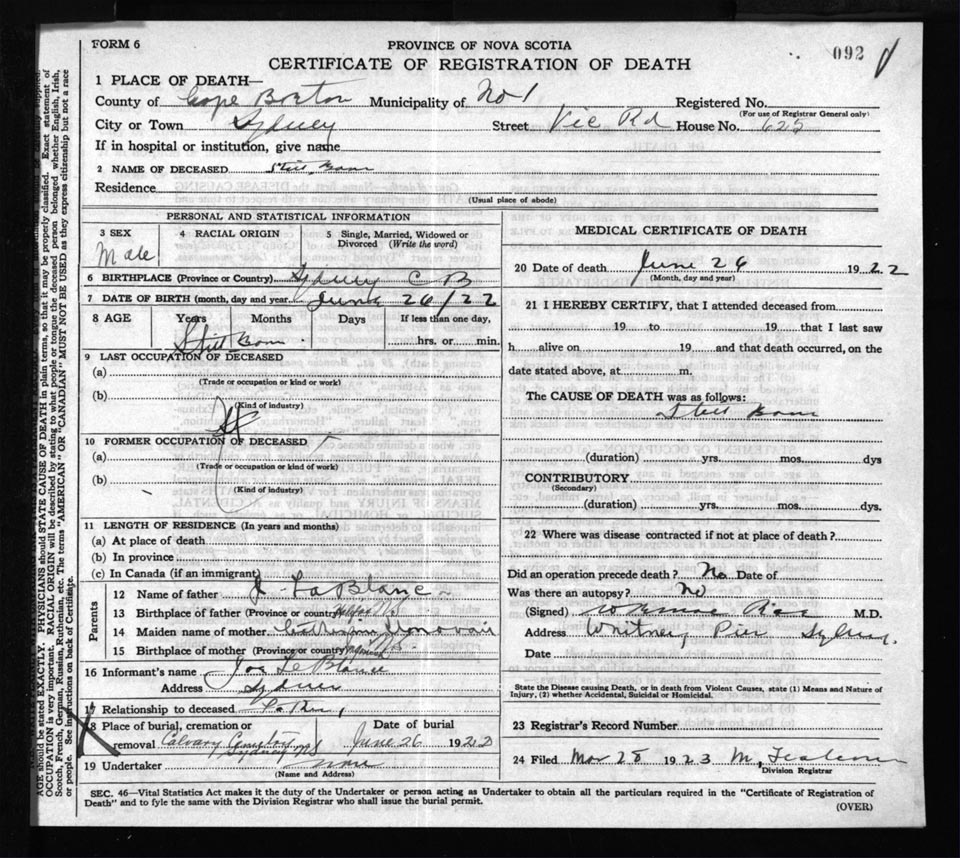 FORM 6
PROVINCE OF NOVA SCOTIA
092
CERTIFICATE OF REGISTRATION OF DEATH
1 PLACE OF DEATH—
County of Cape Breton Municipality of No 1 Registered No.
(For use of Registrar General only)
City or Town Sydney Street Vic Rd House No. 625
If in hospital or institution, give name
2 NAME OF DECEASED Still Born
Residence
(Usual place of abode)
PERSONAL AND STATISTICAL INFORMATION
3 SEX 4 RACIAL ORIGIN 5 Single, Married, Widowed or
Divorced (Write the word)
Male
6 BIRTHPLACE (Province or Country) Sydney C B
7 DATE OF BIRTH (month, day and year) June 26/22
8 AGE Years Months Days If less than one day,
Still Born hrs. or min.
9 LAST OCCUPATION OF DECEASED
(a)
(Trade or occupation or kind or work)
(b)
(Kind of industry)
10 FORMER OCCUPATION OF DECEASED
(a)
(Trade or occupation or kind or work)
(b)
(Kind of industry)
11 LENGTH OF RESIDENCE (In years and months)
(a) At place of death
(b) In province
(c) In Canada (if an immigrant)
Parents
12 Name of father J. LaBlanc
13 Birthplace of father (Province or country) N S
14 Maiden name of mother Donovan
15 Birthplace of mother (Province or country)
16 Informant's name Joe Le Blanc
Address Sydney
17 Relationship to deceased Father
18 Place of burial, cremation or Date of burial
removal Calvary Cemetery Sydney NS June 26 1922
19 Undertaker none
(Name and Address)
MEDICAL CERTIFICATE OF DEATH
20 Date of death June 26 1922
(Month, day and year)
21 I HEREBY CERTIFY, that I attended deceased from
19 to 19 that I last saw
h alive on 19 and that death occurred, on the
date stated above, at m.
The CAUSE OF DEATH was as follows:
Still Born
(duration) yrs. mos. dys
CONTRIBUTORY
(Secondary)
(duration) yrs. mos. dys.
22 Where was disease contracted if not at place of death?
Did an operation precede death? No Date of
Was there an autopsy? No
(Signed) M.D.
Address Whitney Pier Sydney.
Date
State the Disease causing Death, or in death from Violent Causes, state (1) Means and Nature of
Injury, (2) whether Accidental, Suicidal or Homicidal.
23 Registrar's Record Number
24 Filed Mar 28 1923 M.
Division Registrar
SEC. 46—Vital Statistics Act makes it the duty of the Undertaker or person acting as Undertaker to obtain all the particulars required in the "Certificate of Registration of
Death" and to fyle the same with the Division Registrar who shall issue the burial permit.
(OVER)
AGE should be stated EXACTLY. PHYSICIANS should STATE CAUSE OF DEATH in plain terms, so that it may be properly classified. Exact statement of
OCCUPATION is very important. RACIAL ORIGIN will be described by stating to what people or tongue the deceased person belonged whether English, Irish,
Scotch, French, German, Russian, Ruthenian, etc. The terms "AMERICAN" OR "CANADIAN" MUST NOT BE USED as they express citizenship but not a race
or people. See instructions on back of Certificate.